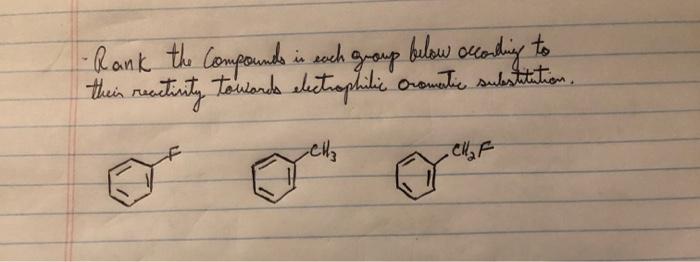 - Rank the Compounds in each group below according to
their reactivity towards electrophilic aromatic substitution.
F CH₃ CH₂F